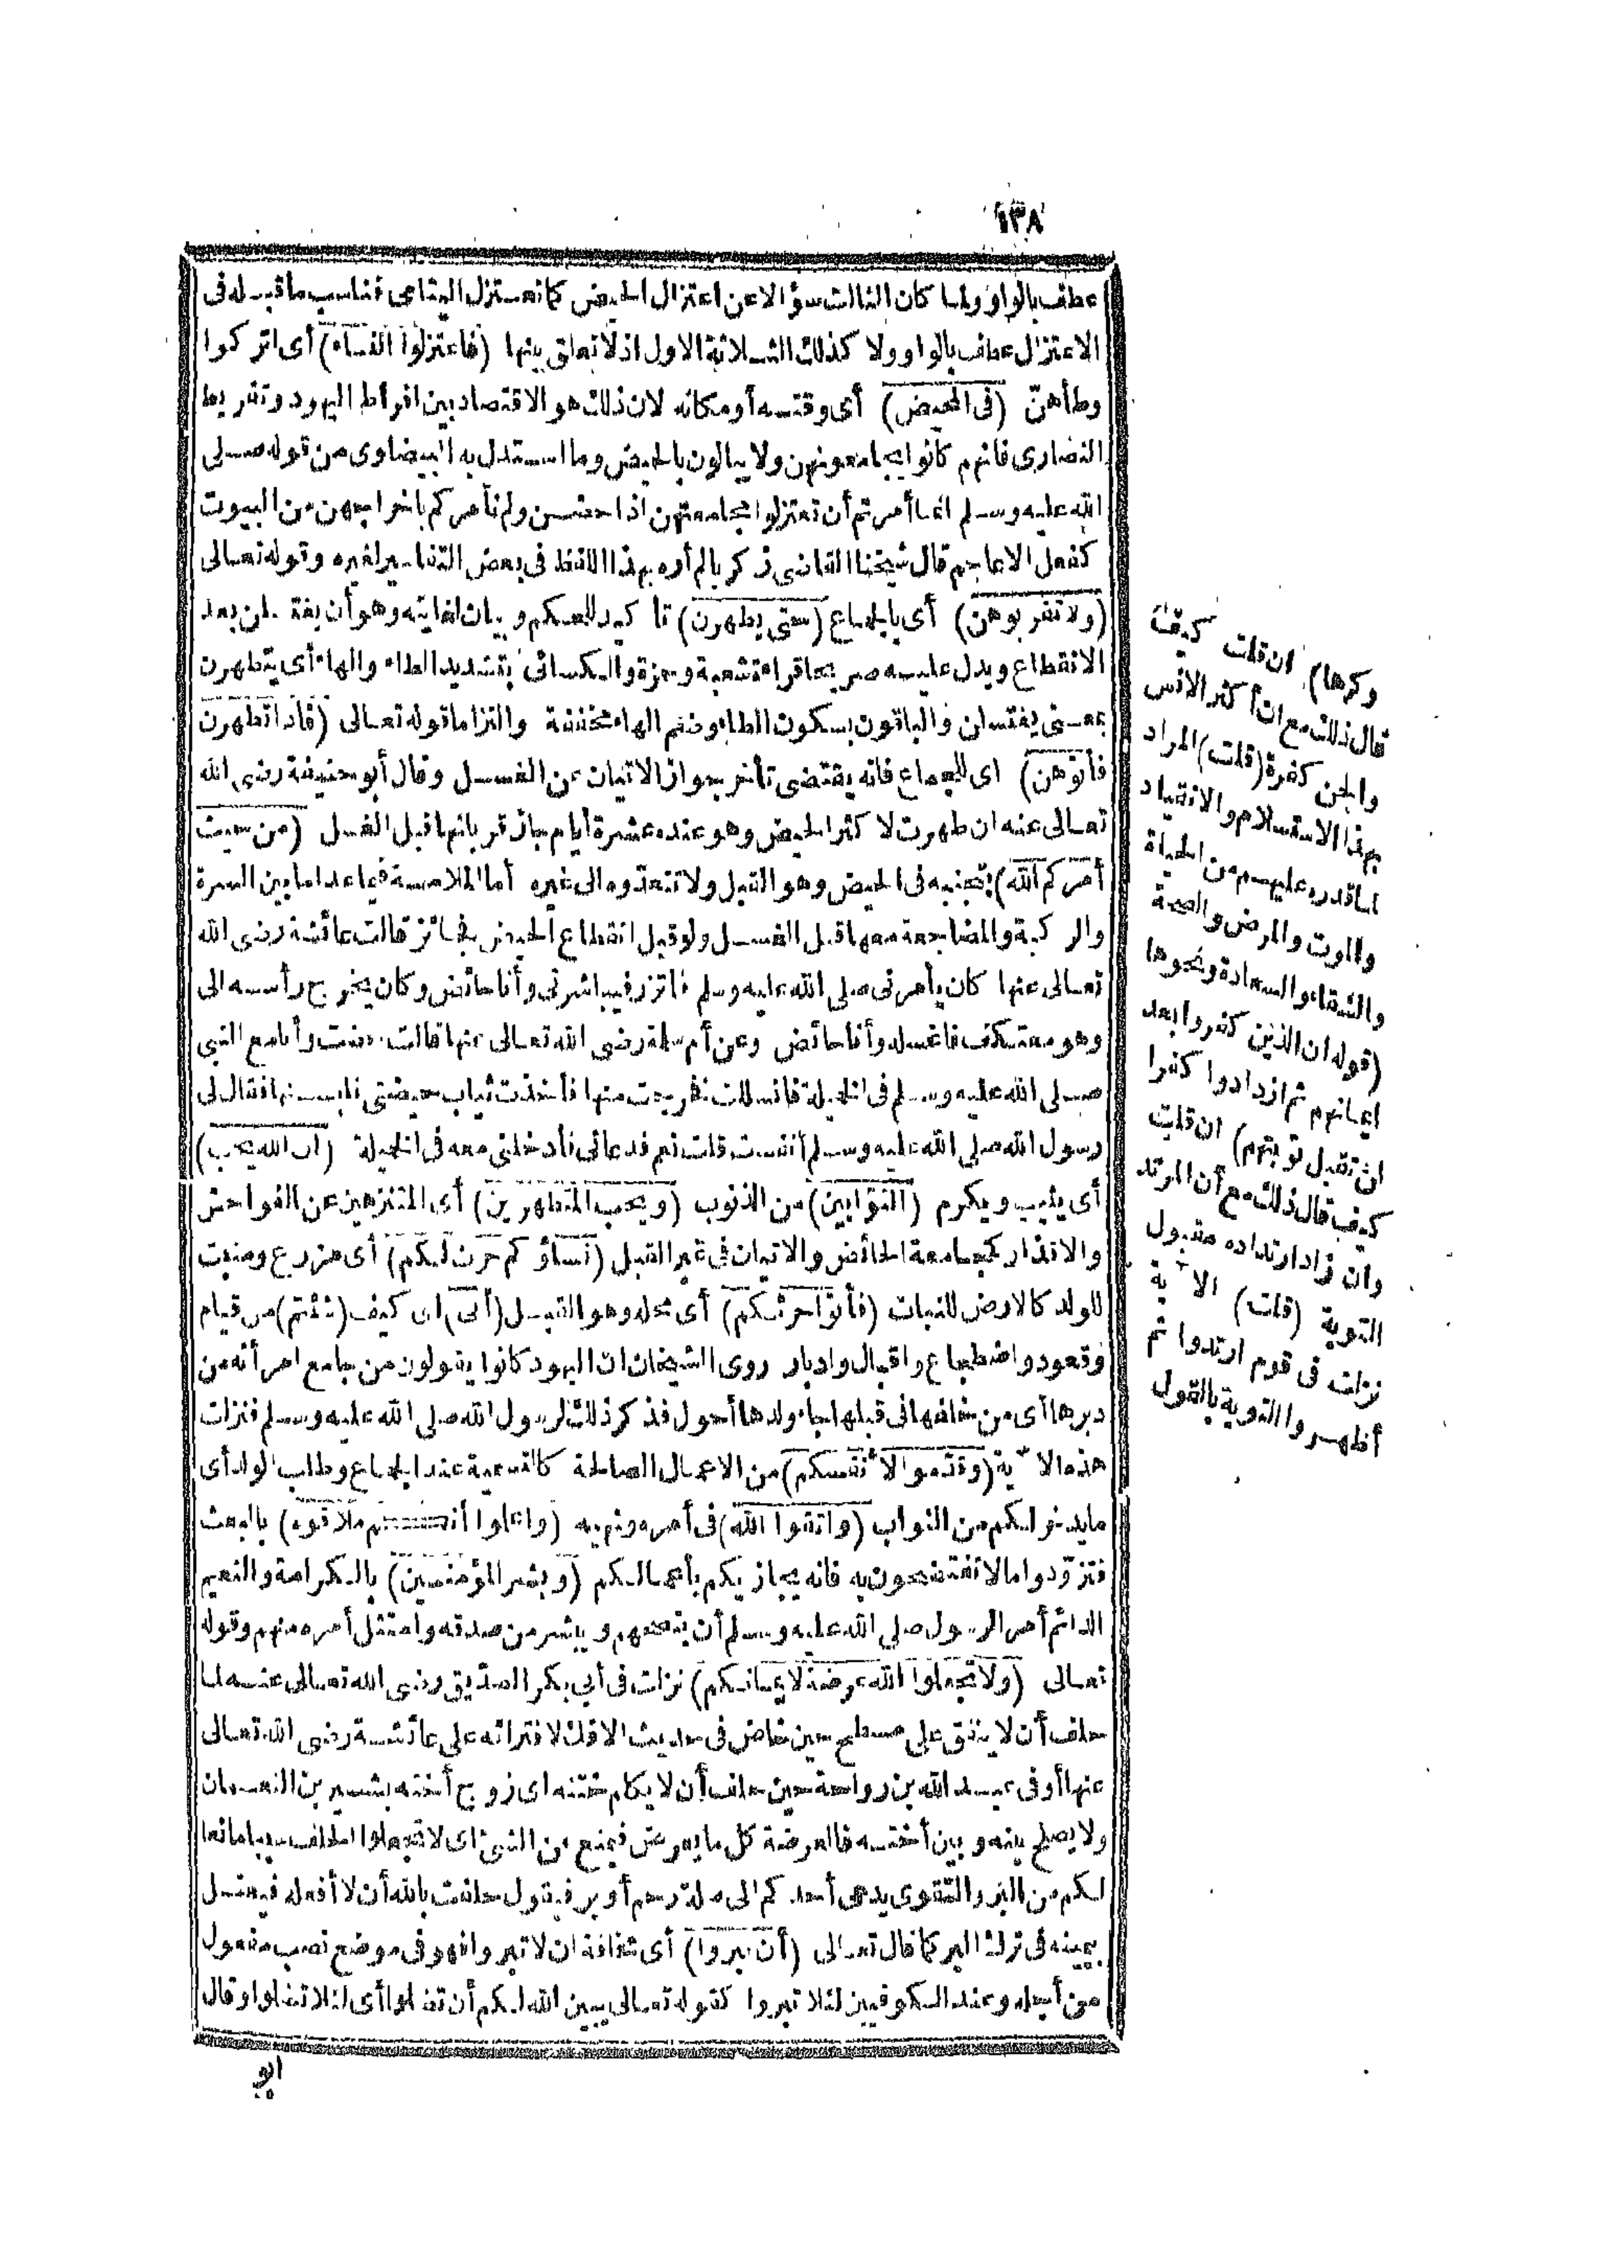 ١٣٨
عطف بالواو ولما كان الثالث سؤالا عن اعتزال الحيض كما تعتزل اليتامى فناسب ما قبله فى
الاعتزال عطف بالواو ولا كذلك الثلاثة الاول اذ لا تعلق بينها (فاعتزلوا النساء) أى اتركوا
وطأهنّ (فى المحيض) أى وقته أو مكانه لان ذلك هو الاقتصاد بين افراط اليهود وتفريط
النصارى فانهم كانوا يجامعونهن ولا يبالون بالحيض وما استدل به البيضاوى من قوله صلى
الله عليه وسلم انما أمرتم أن تعتزلوا مجامعتهن اذا حضن ولم نأمركم باخراجهن من البيوت
كفعل الاعاجم قال شيخنا القاضى زكريا لم أره بهذا اللفظ فى بعض التفاسير لغيره وقوله تعالى
(ولا تقربوهن) أى بالجماع (حتى يطهرن) تأكيد للحكم وبيان لغايته وهو أن يغتسلن بعد
الانقطاع ويدل عليه صريحا قراءة شعبة وحمزة والكسائى بتشديد الطاء والهاء أى يتطهرن
بمعنى يغتسلن والباقون بسكون الطاء وضم الهاء مخففة والتزاما قوله تعالى (فاذا تطهرن
فأتوهن) اى للجماع فانه يقتضى تأخر جواز الاتيان عن الغسل وقال أبو حنيفة رضى الله
تعالى عنه ان طهرت لاكثر الحيض وهو عنده عشرة أيام جاز قربانها قبل الغسل (من حيث
أمركم الله) بتجنبه فى الحيض وهو القبل ولا تتعدّوه الى غيره أما الملامسة فيما عدا ما بين السرة
والركبة والمضاجعة معها قبل الغسل ولو قبل انقطاع الحيض فجائز قالت عائشة رضى الله
تعالى عنها كان يأمرنى صلى الله عليه وسلم فأتزر فيباشرنى وأنا حائض وكان يخرج رأسه الى
وهو معتكف فاغسله وأنا حائض وعن أم سلمة رضى الله تعالى عنها قالت حضت وأنا مع النبى
صلى الله عليه وسلم فى الخميلة فانسللت فخرجت منها فأخذت ثياب حيضتى فلبستها فقال لى
رسول الله صلى الله عليه وسلم أنفست قلت نعم فدعانى فأدخلنى معه فى الخميلة (ان الله يحب)
أى يثيب ويكرم (التوّابين) من الذنوب (ويحب المتطهرين) أى المتنزهين عن الفواحش
والاقذار كمجامعة الحائض والاتيان فى غير القبل (نساؤكم حرث لكم) أى مزرع ومنبت
للولد كالارض للنبات (فأتوا حرثكم) أى محله وهو القبل (أنى) اى كيف (شئتم) من قيام
وقعود واضطجاع واقبال وادبار روى الشيخان ان اليهود كانوا يقولون من جامع امرأته من
دبرها أى من خلفها فى قبلها جاء ولدها أحول فذكر ذلك لرسول الله صلى الله عليه وسلم فنزلت
هذه الآية (وقدّموا لأنفسكم) من الاعمال الصالحة كالتسمية عند الجماع وطلب الولد أى
ما يدخر لكم من الثواب (واتقوا الله) فى أمره ونهيه (واعلموا أنكم ملاقوه) بالبعث
فتزوّدوا ما لا تفتضحون به فانه يجازيكم بأعمالكم (وبشر المؤمنين) بالكرامة والنعيم
الدائم أمر الرسول صلى الله عليه وسلم أن ينصحهم ويبشر من صدقه وامتثل أمره منهم وقوله
تعالى (ولا تجعلوا الله عرضة لايمانكم) نزلت فى أبى بكر الصدّيق رضى الله تعالى عنه لما
حلف أن لا ينفق على مسطح حين خاض فى حديث الافك لافترائه على عائشة رضى الله تعالى
عنها أو فى عبد الله بن رواحة حين حلف أن لا يكلم ختنه اى زوج أخته بشير بن النعمان
ولا يصلح بينه وبين أخته فالعرضة كل ما يعرض فيمنع عن الشئ اى لا تجعلوا الحلف سببا مانعا
لكم من البر والتقوى يدعى أحدكم الى صلة رحم أو بر فيقول حلفت بالله أن لا أفعله فيعتل
بيمينه فى ترك البر كما قال تعالى (أن تبروا) أى مخافة ان لا تبروا فهو فى موضع نصب مفعول
من أجله وعند الكوفيين لئلا تبروا كقوله تعالى يبين الله لكم أن تضلوا أى لئلا تضلوا وقال
ابو
وكرها) ان قلت كيف
قال ذلك مع ان أكثر الانس
والجن كفرة (قلت) المراد
بهذا الاستسلام والانقياد
لما قدره عليهم من الحياة
والموت والمرض والصحة
والشقاء والسعادة ونحوها
(قوله ان الذين كفروا بعد
ايمانهم ثم ازدادوا كفرا
لن تقبل توبتهم) ان قلت
كيف قال ذلك مع أن المرتد
وان زاد ارتداده مقبول
التوبة (قلت) الآية
نزلت فى قوم ارتدوا ثم
أظهروا التوبة بالقول